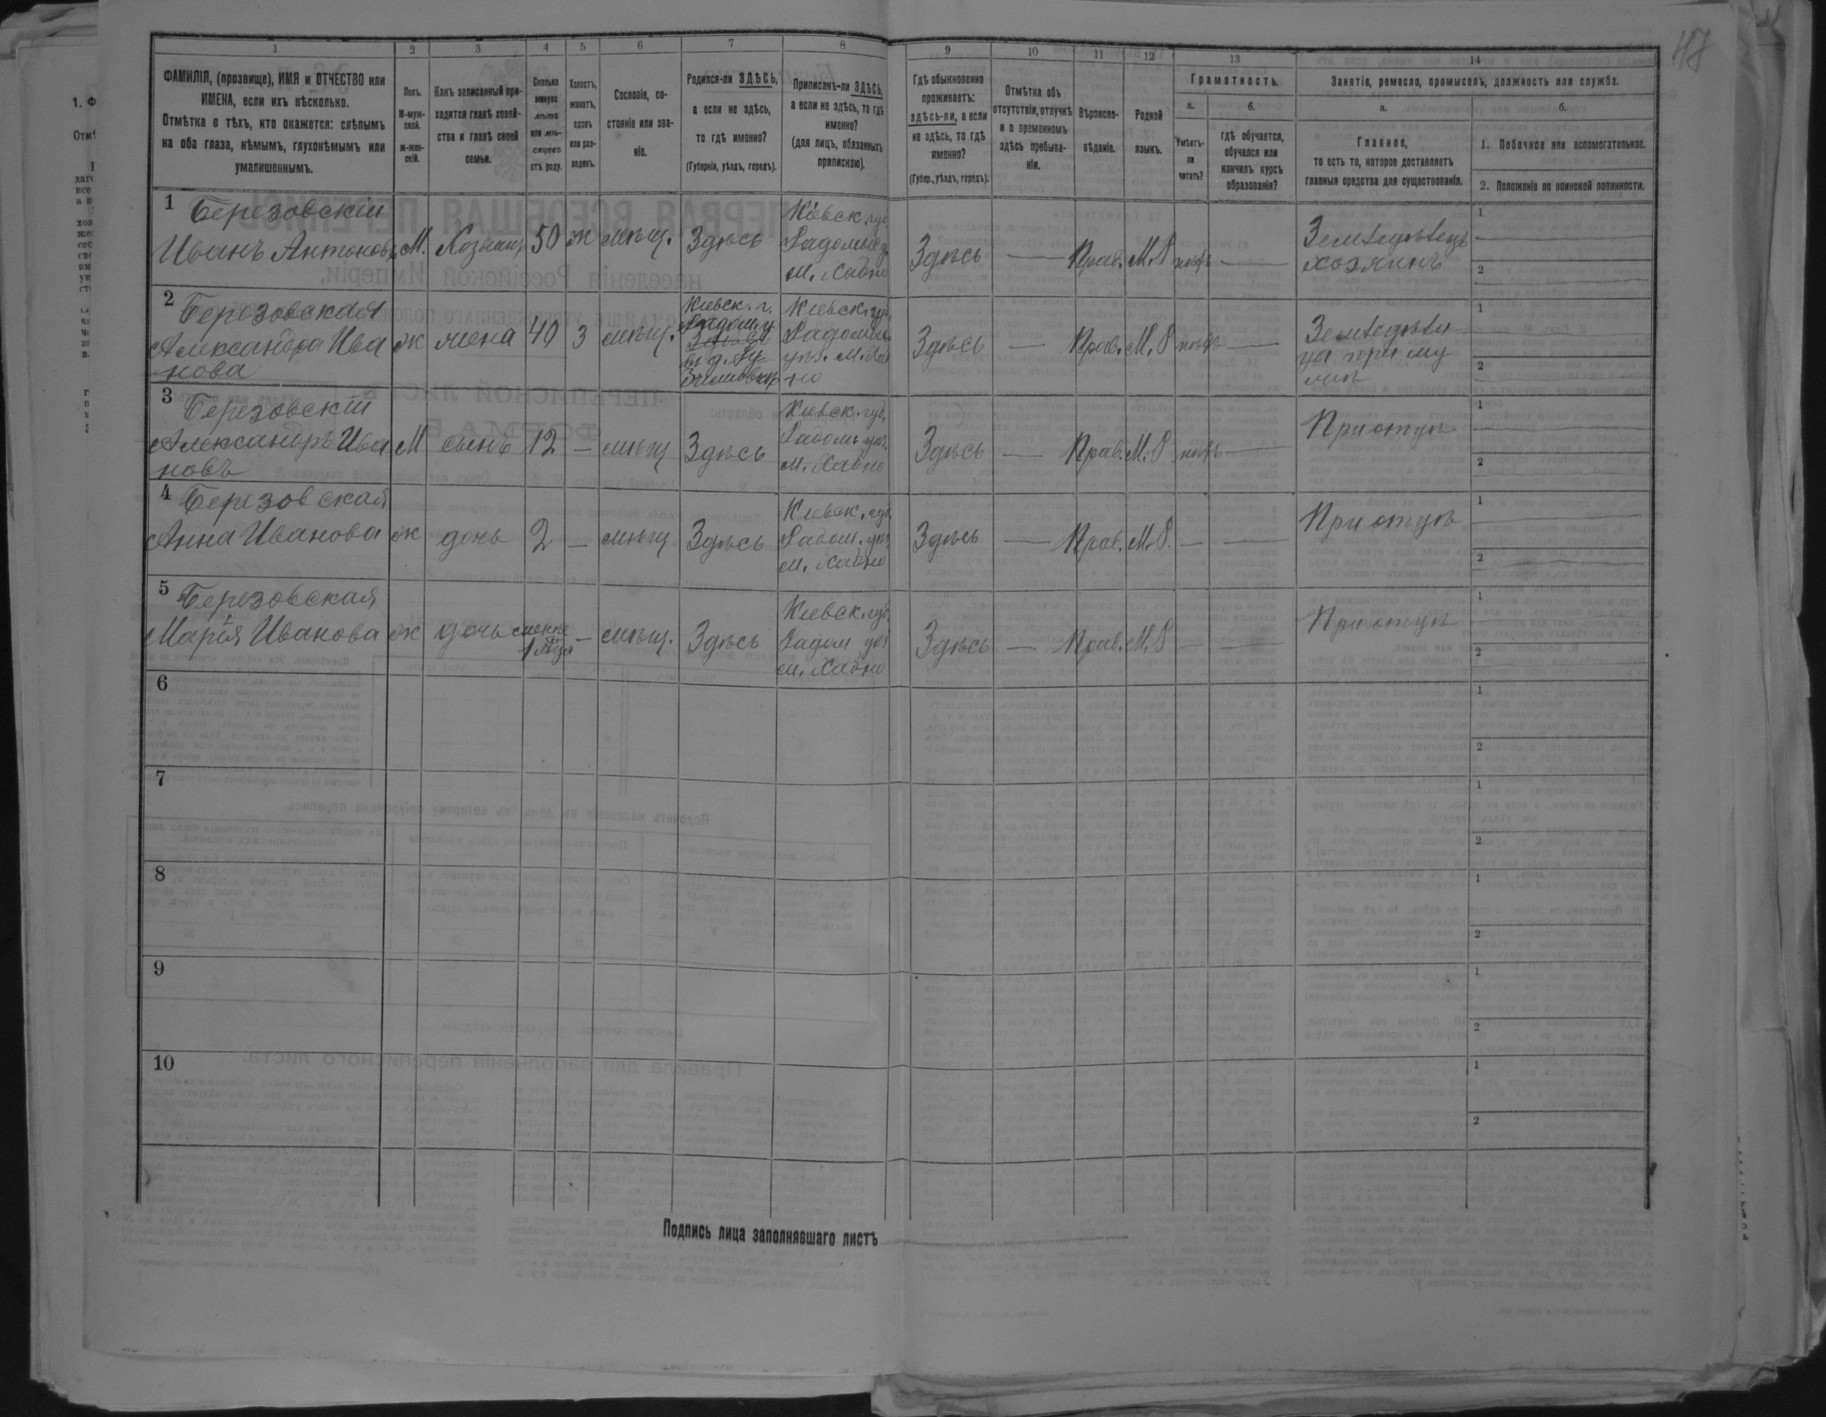 47
1 2 3 4 5 6 7 8 9 10 11 12 13 14
ФАМИЛІЯ, (прозвище), ИМЯ и ОТЧЕСТВО или
ИМЕНА, если ихъ нѣсколько.
Отмѣтка о тѣхъ, кто окажется: слѣпымъ
на оба глаза, нѣмымъ, глухонѣмымъ или
умалишеннымъ.
Полъ.
М-муж-
ской.
Ж-жен-
скій.
Какъ записанный при-
ходится главѣ хозяй-
ства и главѣ своей
семьи.
Сколько
минуло
лѣтъ
или мѣ-
сяцевъ
отъ роду.
Холостъ,
женатъ,
вдовъ
или раз-
веденъ.
Сословіе, со-
стояніе или зва-
ніе.
Родился-ли ЗДѢСЬ,
а если не здѣсь,
то гдѣ именно?
(Губернія, уѣздъ, городъ).
Приписанъ-ли ЗДѢСЬ,
а если не здѣсь, то гдѣ
именно?
(для лицъ, обязанныхъ
припискою).
Гдѣ обыкновенно
проживаетъ:
здѣсь-ли, а если
не здѣсь, то гдѣ
именно?
(Губер., уѣздъ, городъ).
Отмѣтка объ
отсутствіи, отлучкѣ
и о временномъ
здѣсь пребыва-
ніи.
Вѣроиспо-
вѣданіе.
Родной
языкъ.
Грамотность.
а.
Умѣетъ-
ли
читать?
б.
гдѣ обучается,
обучался или
кончилъ курсъ
образованія?
Занятіе, ремесло, промыселъ, должность или служба.
а.
Главное,
то есть то, которое доставляетъ
главныя средства для существованія.
б.
1. Побочное или вспомогательное.
2. Положеніе по воинской повинности.
1 Березовскій
Иванъ Антоновъ М. Хозяинъ 50 ж мѣщ. Здѣсь
Кіевск. губ.
Радомыс. у
м. Хабно
Здѣсь — Прав. М.Р. —
Земледѣлецъ
хозяинъ
1
2
2 Березовская
Александра Ива
нова
ж жена 40 з мѣщ.
Кіевск. г.
Кіевск. губ.
м. Хаб
но
Здѣсь — Прав. М.Р. —
Земледѣли
ца при му
жѣ
1
2
3 Березовскій
Александръ Ива
новъ
М сынъ 12 — мѣщ Здѣсь
Кіевск. губ.
Радом. уѣз.
м. Хабно
Здѣсь — Прав. М.Р. —
При отцѣ
1
2
4 Березовская
Анна Иванова ж дочь 2 — мѣщ Здѣсь
Кіевск. губ.
Радом. уѣз.
м. Хабно
Здѣсь — Прав. М.Р. — —
При отцѣ
1
2
5 Березовская
Марія Иванова ж дочь
менѣе
1
— мѣщ. Здѣсь
Кіевск. губ.
Радом уѣз
м. Хабно
Здѣсь — Прав. М.Р. — —
При отцѣ
1
2
6
1
2
7
1
2
8
1
2
9
1
2
10
1
2
Подпись лица заполнявшаго листъ